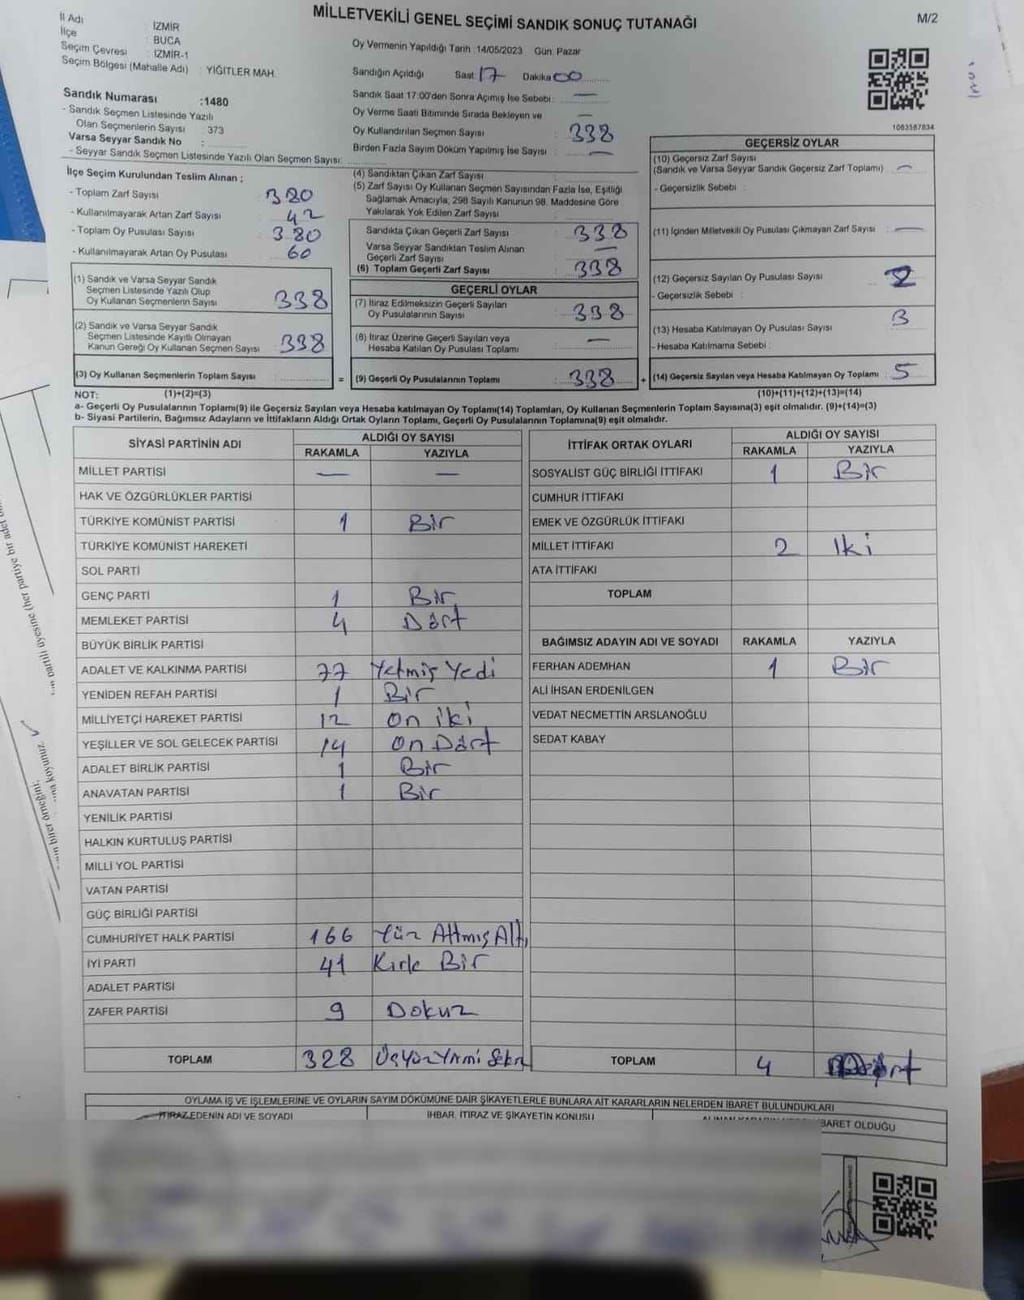 MİLLETVEKİLİ GENEL SEÇİMİ SANDIK SONUÇ TUTANAĞI
M/2
İl Adı İZMİR
İlçe : BUCA
Seçim Çevresi : İZMİR-1
Seçim Bölgesi (Mahalle Adı) : YİĞİTLER MAH.
Oy Vermenin Yapıldığı Tarih : 14/05/2023 Gün: Pazar
Sandığın Açıldığı Saat 17 Dakika 00
Sandık Saat 17:00'den Sonra Açımış İse Sebebi : —
Oy Verme Saati Bitiminde Sırada Bekleyen ve —
Oy Kullandırılan Seçmen Sayısı : 338
Birden Fazla Sayım Döküm Yapılmış İse Sayısı : —
Sandık Numarası :1480
- Sandık Seçmen Listesinde Yazılı
Olan Seçmenlerin Sayısı : 373
Varsa Seyyar Sandık No :
- Seyyar Sandık Seçmen Listesinde Yazılı Olan Seçmen Sayısı:
1063567834
İlçe Seçim Kurulundan Teslim Alınan ;
- Toplam Zarf Sayısı 380
- Kullanılmayarak Artan Zarf Sayısı : 42
- Toplam Oy Pusulası Sayısı : 380
- Kullanılmayarak Artan Oy Pusulası : 60
(1) Sandık ve Varsa Seyyar Sandık
Seçmen Listesinde Yazılı Olup
Oy Kullanan Seçmenlerin Sayısı : 338
(2) Sandık ve Varsa Seyyar Sandık
Seçmen Listesinde Kayıtlı Olmayan
Kanun Gereği Oy Kullanan Seçmen Sayısı : 338
(3) Oy Kullanan Seçmenlerin Toplam Sayısı :
(1)+(2)=(3)
(4) Sandıktan Çıkan Zarf Sayısı :
(5) Zarf Sayısı Oy Kullanan Seçmen Sayısından Fazla İse, Eşitliği
Sağlamak Amacıyla, 298 Sayılı Kanunun 98. Maddesine Göre
Yakılarak Yok Edilen Zarf Sayısı :
Sandıkta Çıkan Geçerli Zarf Sayısı : 338
Varsa Seyyar Sandıktan Teslim Alınan
Geçerli Zarf Sayısı : —
(6) Toplam Geçerli Zarf Sayısı : 338
GEÇERLİ OYLAR
(7) İtiraz Edilmeksizin Geçerli Sayılan
Oy Pusulalarının Sayısı : 338
(8) İtiraz Üzerine Geçerli Sayılan veya
Hesaba Katılan Oy Pusulası Toplamı : —
= (9) Geçerli Oy Pusulalarının Toplamı : 338 +
GEÇERSİZ OYLAR
(10) Geçersiz Zarf Sayısı
(Sandık ve Varsa Seyyar Sandık Geçersiz Zarf Toplamı) : —
- Geçersizlik Sebebi :
(11) İçinden Milletvekili Oy Pusulası Çıkmayan Zarf Sayısı : —
(12) Geçersiz Sayılan Oy Pusulası Sayısı : 2
- Geçersizlik Sebebi :
(13) Hesaba Katılmayan Oy Pusulası Sayısı : 3
- Hesaba Katılmama Sebebi :
(14) Geçersiz Sayılan veya Hesaba Katılmayan Oy Toplamı : 5
(10)+(11)+(12)+(13)=(14)
NOT:
a- Geçerli Oy Pusulalarının Toplamı(9) ile Geçersiz Sayılan veya Hesaba katılmayan Oy Toplamı(14) Toplamları, Oy Kullanan Seçmenlerin Toplam Sayısına(3) eşit olmalıdır. (9)+(14)=(3)
b- Siyasi Partilerin, Bağımsız Adayların ve İttifakların Aldığı Ortak Oyların Toplamı, Geçerli Oy Pusulalarının Toplamına(9) eşit olmalıdır.
SİYASİ PARTİNİN ADI ALDIĞI OY SAYISI
RAKAMLA YAZIYLA
MİLLET PARTİSİ — —
HAK VE ÖZGÜRLÜKLER PARTİSİ
TÜRKİYE KOMÜNİST PARTİSİ 1 Bir
TÜRKİYE KOMÜNİST HAREKETİ
SOL PARTİ
GENÇ PARTİ 1 Bir
MEMLEKET PARTİSİ 4 Dört
BÜYÜK BİRLİK PARTİSİ
ADALET VE KALKINMA PARTİSİ 77 Yetmiş Yedi
YENİDEN REFAH PARTİSİ 1 Bir
MİLLİYETÇİ HAREKET PARTİSİ 12 On iki
YEŞİLLER VE SOL GELECEK PARTİSİ 14 On Dört
ADALET BİRLİK PARTİSİ 1 Bir
ANAVATAN PARTİSİ 1 Bir
YENİLİK PARTİSİ
HALKIN KURTULUŞ PARTİSİ
MİLLİ YOL PARTİSİ
VATAN PARTİSİ
GÜÇ BİRLİĞİ PARTİSİ
CUMHURİYET HALK PARTİSİ 166 Yüz Altmış Altı
İYİ PARTİ 41 Kırk Bir
ADALET PARTİSİ
ZAFER PARTİSİ 9 Dokuz
TOPLAM 328 Üçyüz Yirmi Sekiz
İTTİFAK ORTAK OYLARI ALDIĞI OY SAYISI
RAKAMLA YAZIYLA
SOSYALİST GÜÇ BİRLİĞİ İTTİFAKI 1 Bir
CUMHUR İTTİFAKI
EMEK VE ÖZGÜRLÜK İTTİFAKI
MİLLET İTTİFAKI 2 İki
ATA İTTİFAKI
TOPLAM
BAĞIMSIZ ADAYIN ADI VE SOYADI RAKAMLA YAZIYLA
FERHAN ADEMHAN 1 Bir
ALİ İHSAN ERDENİLGEN
VEDAT NECMETTİN ARSLANOĞLU
SEDAT KABAY
TOPLAM 4
OYLAMA İŞ VE İŞLEMLERİNE VE OYLARIN SAYIM DÖKÜMÜNE DAİR ŞİKAYETLERLE BUNLARA AİT KARARLARIN NELERDEN İBARET BULUNDUKLARI
İTİRAZ EDENİN ADI VE SOYADI İHBAR, İTİRAZ VE ŞİKAYETİN KONUSU